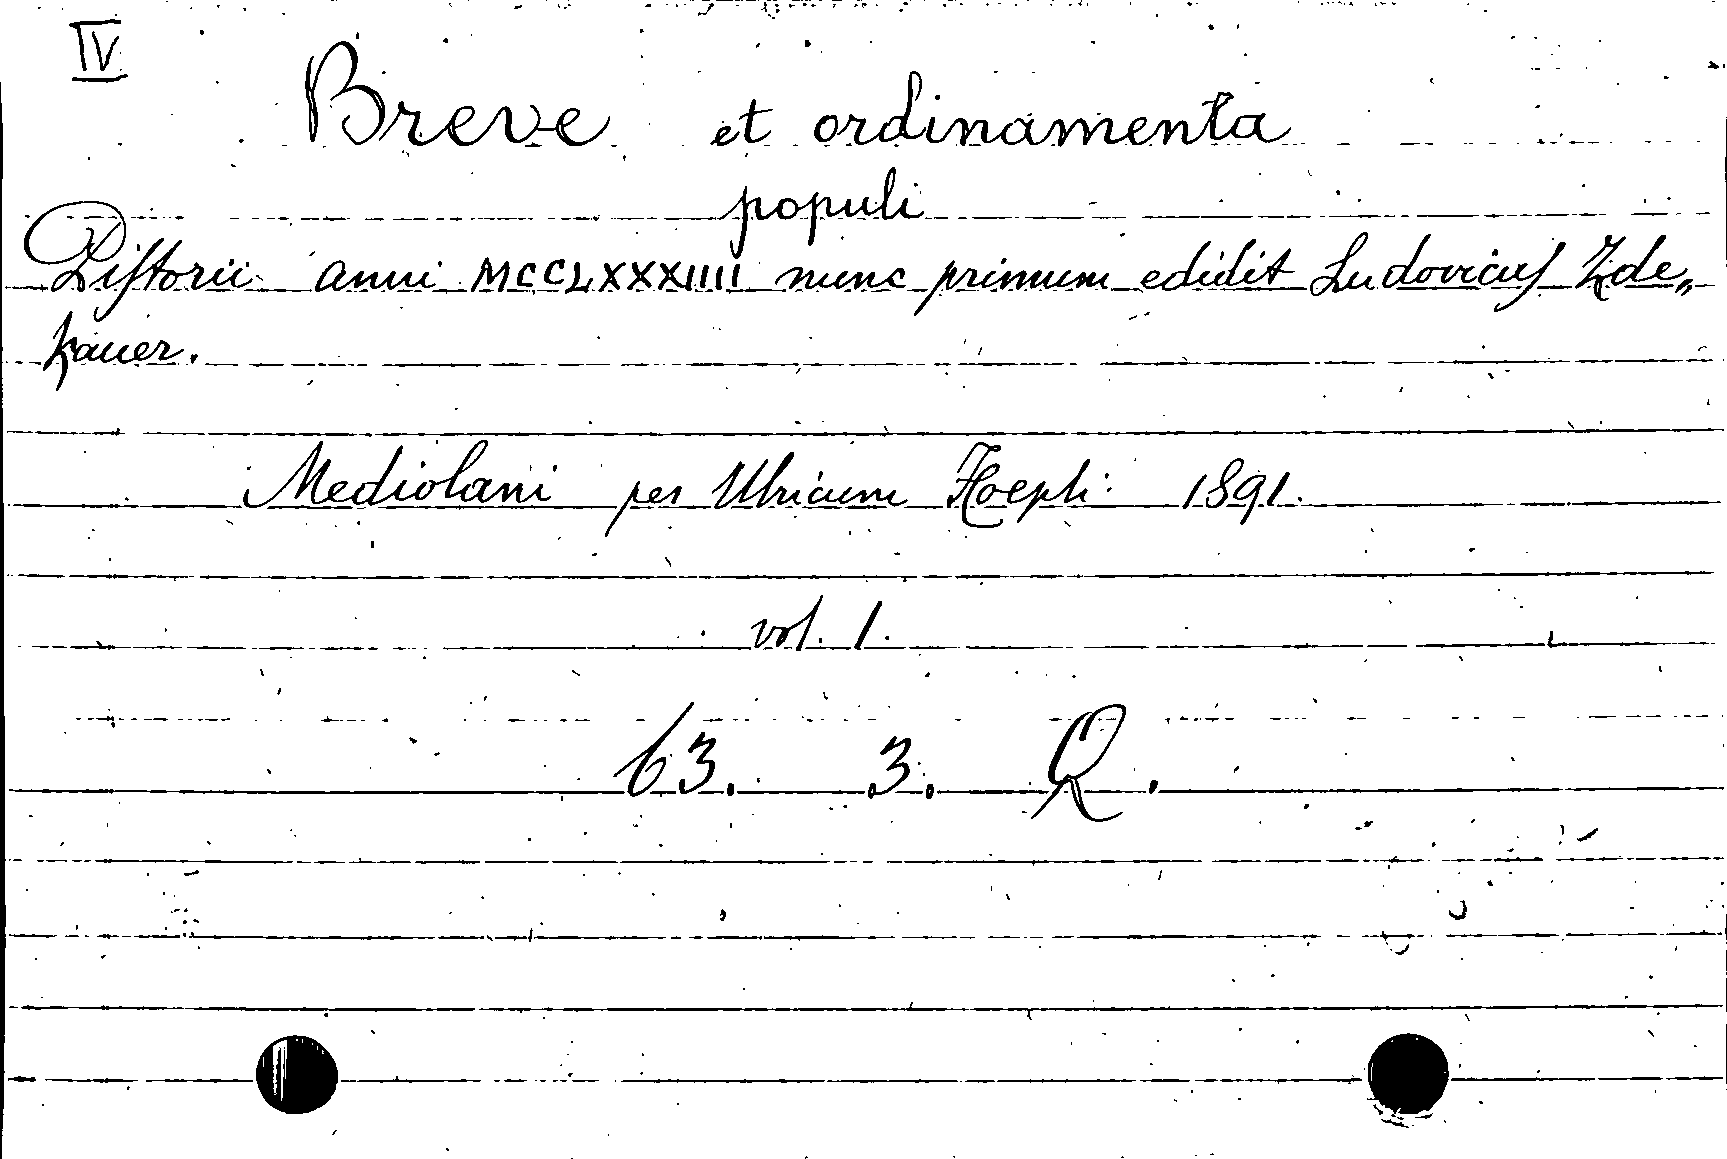 IV
Breve et ordinamenta
populi
Pistorii anni MCCLXXXIIII nunc primum edidit Ludovicus Zde„
kauer.
Mediolani per Ulricum Hoepli 1891.
vol. 1.
63. 3. Q.